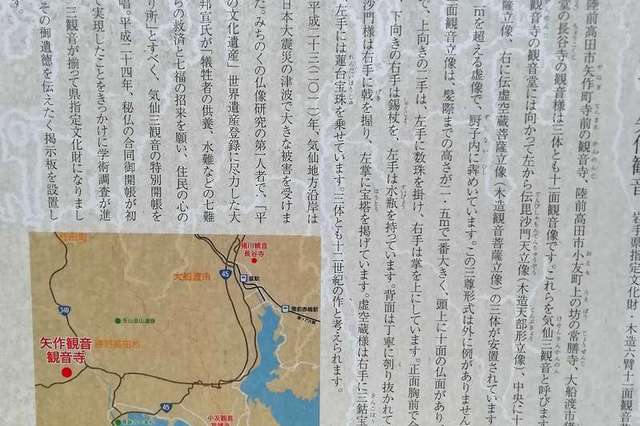 手県指定文化財・木造六臂十一面観音
陸前高田市矢作町寺前の観音寺、陸前高田市小友町上の坊の常膳寺、大船渡市猪
堂の長谷寺の観音様は三体とも十一面観音像です。これらを気仙三観音と呼びます
観音寺の観音堂には向かって左から伝毘沙門天立像(木造天部形立像)、中央に十
薩立像、右に伝虚空蔵菩薩立像(木造観音菩薩立像)の三体が安置されています
mを超える虚像で、厨子内に蔵めています。この三尊形式は外に例がありません
面観音立像は、髪際までの高さが一・五mで一番大きく、頭上に十面の仏面があり
で、上向きの二手は、左手に数珠を掛け、右手は掌を上にしています。正面胸前で合
、下向きの右手は錫杖を、左手は水瓶を持っています。背面は丁寧に刳り抜かれて
沙門様は右手に戟を握り、左掌に宝塔を掲げています。虚空蔵様は右手に三鈷宝
左手には蓮台宝珠を乗せています。三体とも十二世紀の作と考えられます。
平成二十三(二〇一一)年、気仙地方沿岸は
日本大震災の津波で大きな被害を受けま
た。みちのくの仏像研究の第一人者で、「平
の文化遺産」世界遺産登録に尽力した大
邦宣氏が「犠牲者の供養、水難などの七難
らの救済と七福の招来を願い、住民の心の
り所」とすべく、気仙三観音の特別開帳を
唱。平成二十四年、秘仏の合同御開帳が初
実現したことをきっかけに学術調査が進
三観音が揃って県指定文化財になりまし
その御遺徳を伝えたく掲示板を設置し
大船渡市
猪川観音
長谷寺
盛駅
45
340
矢作観音
観音寺
陸前高田市
45
小友観音